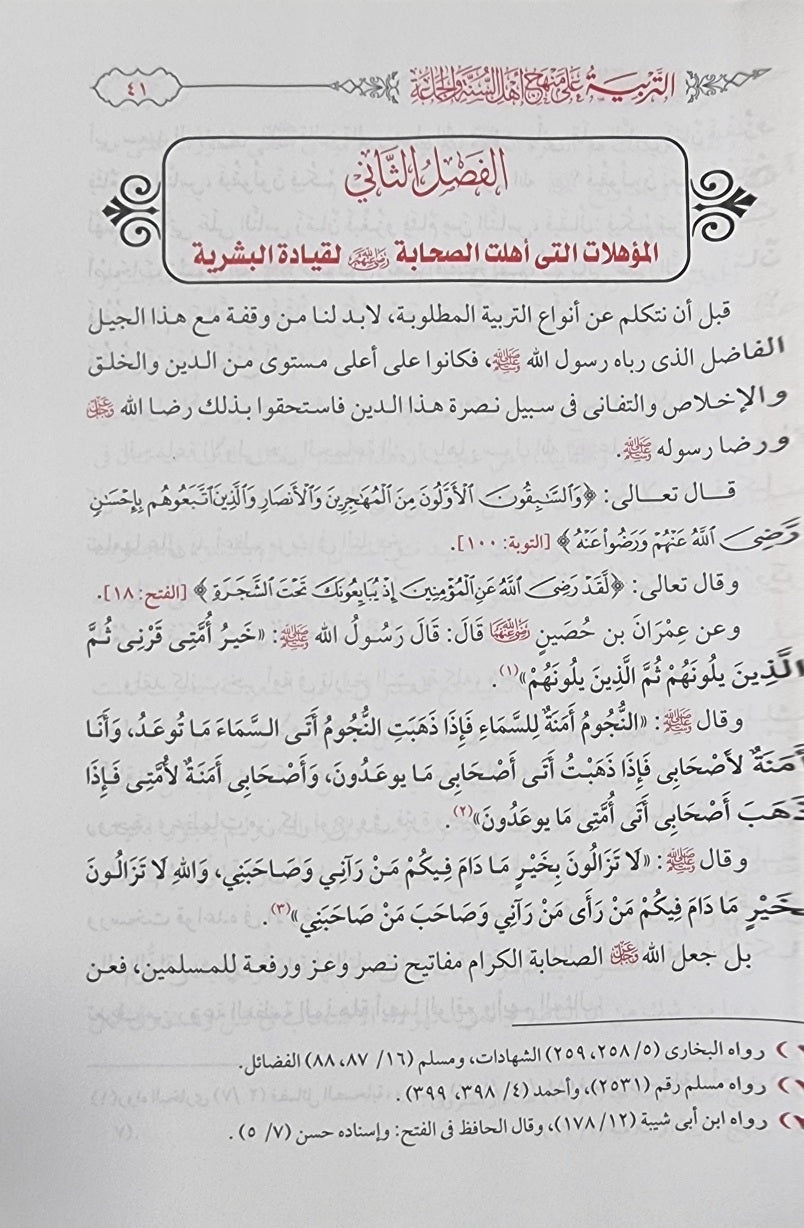 التربية على منهج أهل السنة والجماعة
٤١
الفصل الثاني
المؤهلات التى أهلت الصحابة رضي الله عنهم لقيادة البشرية
قبل أن نتكلم عن أنواع التربية المطلوبة، لابد لنا من وقفة مع هذا الجيل
الفاضل الذى رباه رسول الله ﷺ، فكانوا على أعلى مستوى من الدين والخلق
والإخلاص والتفانى فى سبيل نصرة هذا الدين فاستحقوا بذلك رضا الله عز وجل
ورضا رسوله ﷺ.
قال تعالى: ﴿وَالسَّٰبِقُونَ الْأَوَّلُونَ مِنَ الْمُهَٰجِرِينَ وَالْأَنصَارِ وَالَّذِينَ اتَّبَعُوهُم بِإِحْسَٰنٍ
رَّضِيَ اللَّهُ عَنْهُمْ وَرَضُوا عَنْهُ﴾ [التوبة: ١٠٠].
وقال تعالى: ﴿لَّقَدْ رَضِيَ اللَّهُ عَنِ الْمُؤْمِنِينَ إِذْ يُبَايِعُونَكَ تَحْتَ الشَّجَرَةِ﴾ [الفتح: ١٨].
وعن عِمْرَانَ بن حُصَينٍ رضي الله عنهما قَالَ: قَالَ رَسُولُ الله ﷺ: «خَيرُ أُمَّتِى قَرْنِى ثُمَّ
الَّذِينَ يلُونَهُمْ ثُمَّ الَّذِينَ يلُونَهُمْ»(١).
وقال ﷺ: «النُّجُومُ أَمَنَةٌ لِلسَّمَاءِ فَإِذَا ذَهَبَتِ النُّجُومُ أَتَى السَّمَاءَ مَا تُوعَدُ، وَأَنَا
أَمَنَةٌ لأَصْحَابِى فَإِذَا ذَهَبْتُ أَتَى أَصْحَابِى مَا يوعَدُونَ، وَأَصْحَابِى أَمَنَةٌ لأُمَّتِى فَإِذَا
ذَهَبَ أَصْحَابِى أَتَى أُمَّتِى مَا يوعَدُونَ»(٢).
وقال ﷺ: «لَا تَزَالُونَ بِخَيْرٍ مَا دَامَ فِيكُمْ مَنْ رَآنِي وَصَاحَبَنِي، وَاللهِ لَا تَزَالُونَ
بِخَيْرٍ مَا دَامَ فِيكُمْ مَنْ رَأَى مَنْ رَآنِي وَصَاحَبَ مَنْ صَاحَبَنِي»(٣).
بل جعل الله عز وجل الصحابة الكرام مفاتيح نصر وعز ورفعة للمسلمين، فعن
رواه البخارى (٥/ ٢٥٨، ٢٥٩) الشهادات، ومسلم (١٦/ ٨٧، ٨٨) الفضائل.
رواه مسلم رقم (٢٥٣١)، وأحمد (٤/ ٣٩٨، ٣٩٩).
رواه ابن أبى شيبة (١٢/ ١٧٨)، وقال الحافظ فى الفتح: وإسناده حسن (٧/ ٥).